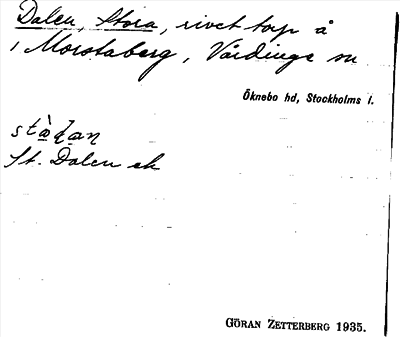 Dalen, Stora, rivet torp å
i Morstaberg, Vårdinge sn
Öknebo hd, Stockholms l.
St. Dalen ek
GÖRAN ZETTERBERG 1935.